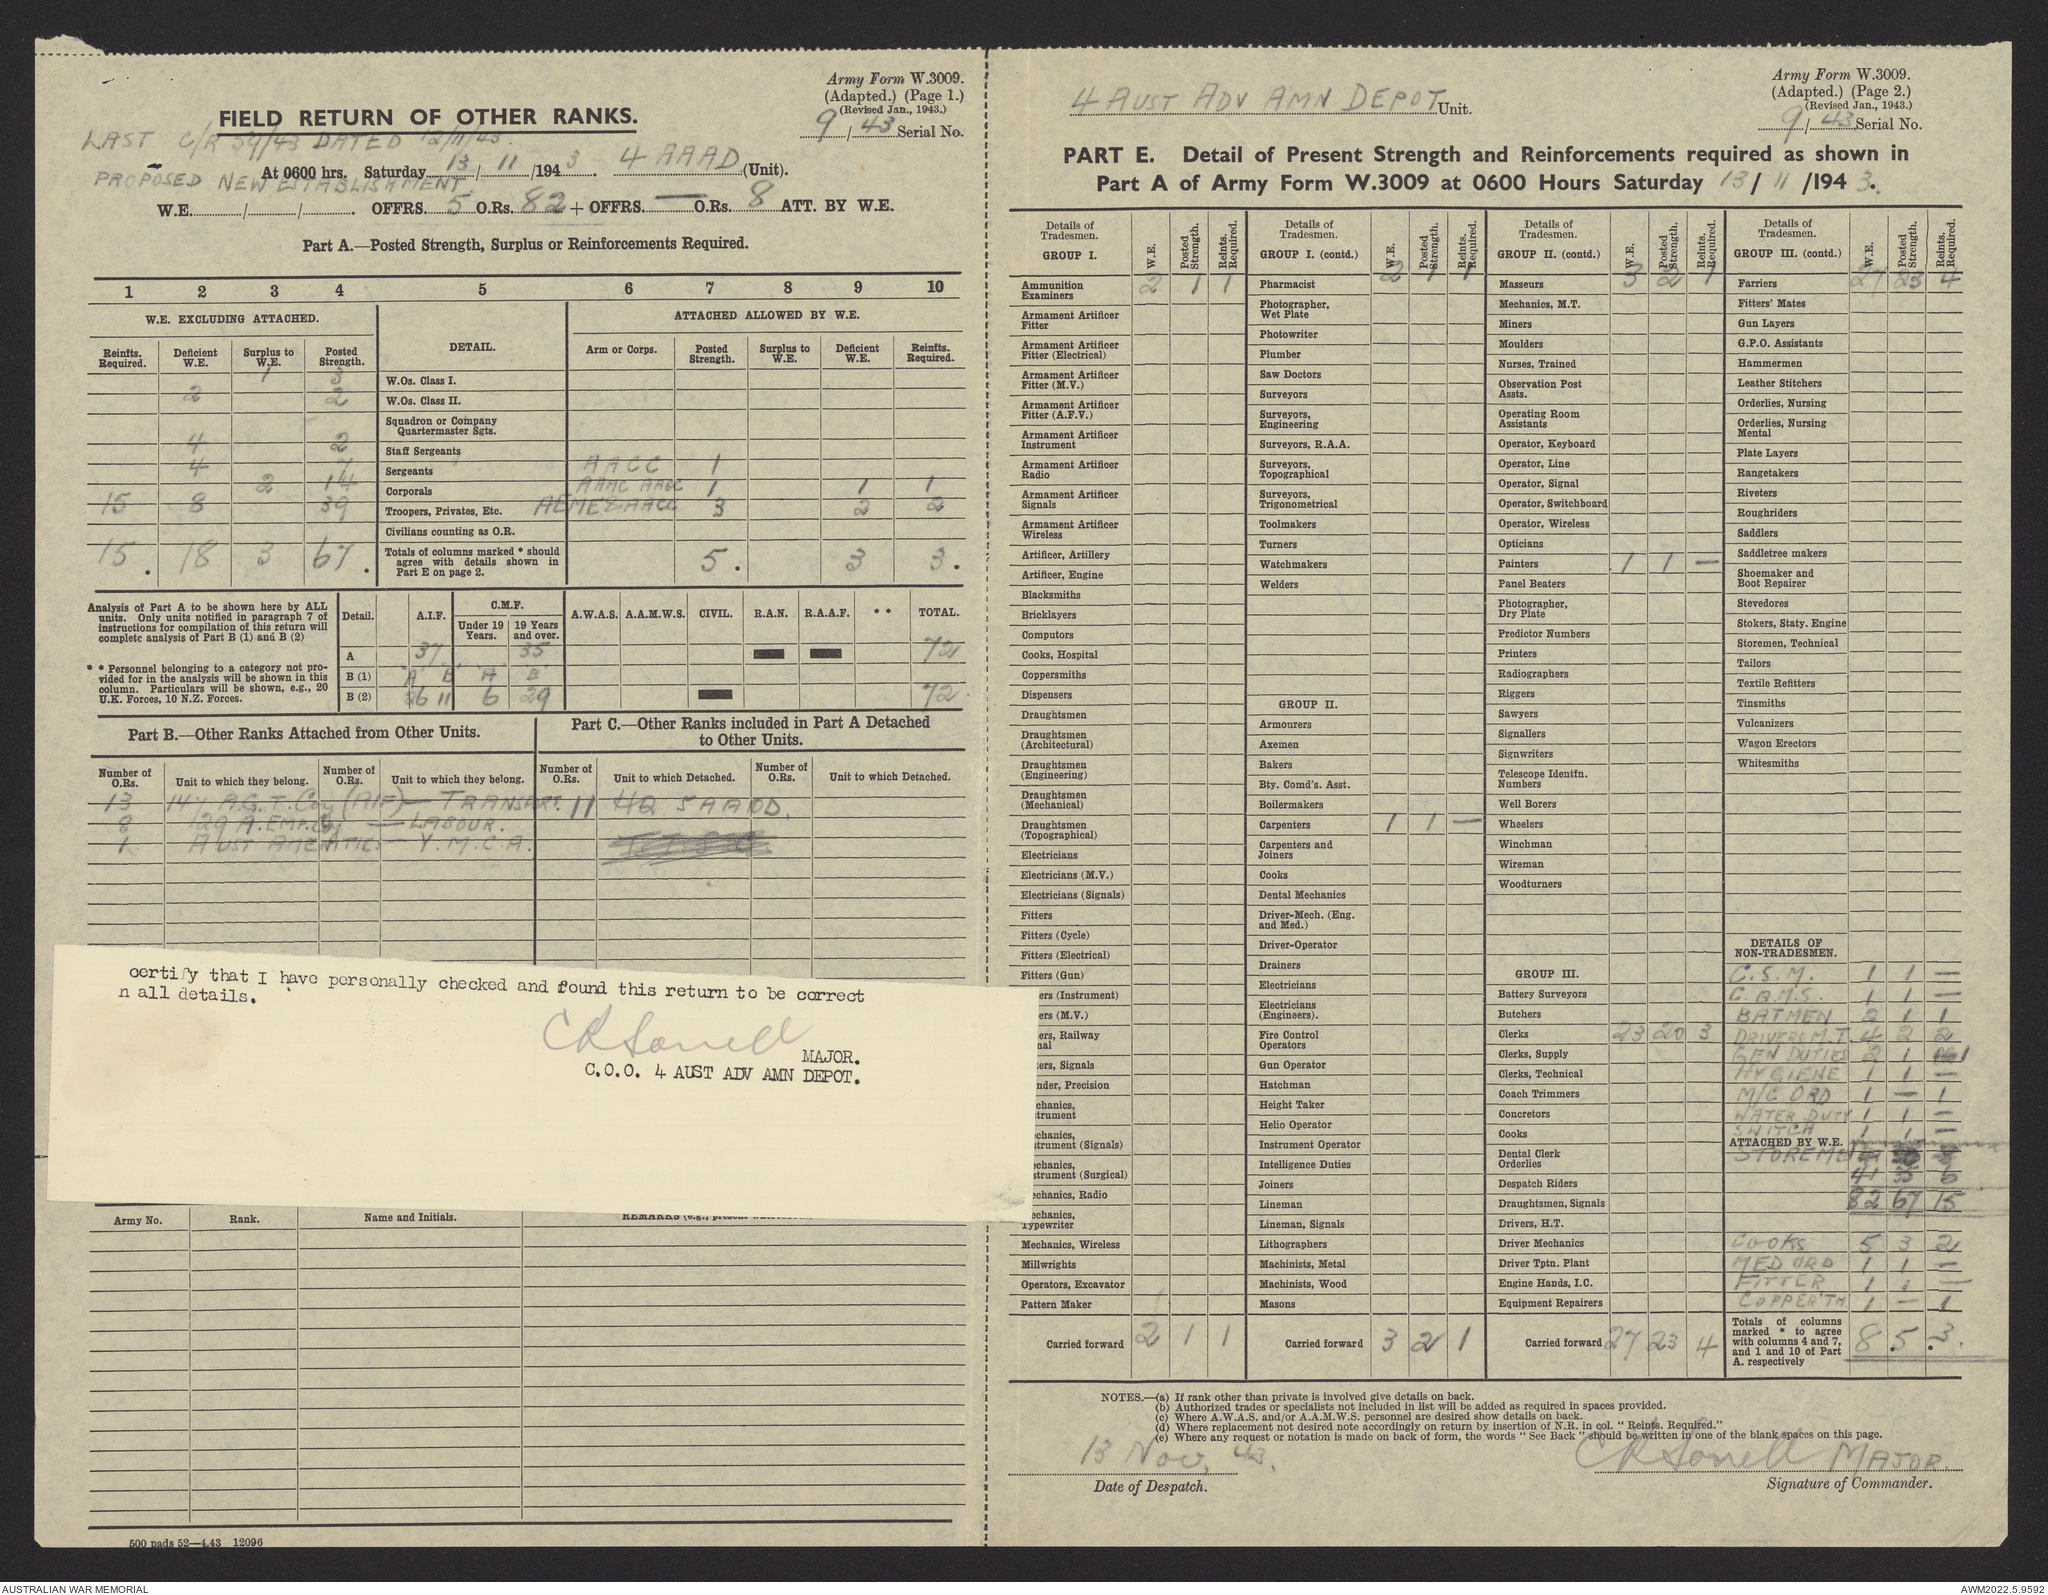 Army Form W.3009.
(Adapted.) (Page 1.)
(Revised Jan., 1943.)
9/43 Serial No.
FIELD RETURN OF OTHER RANKS.
LAST C/R 54/43 DATED 12/11/43.
At 0600 hrs. Saturday 13/11/1943 4 AAAD (Unit).
PROPOSED NEW ESTABLISHMENT
W.E. / / . OFFRS. 5 O.Rs. 82 + OFFRS. — O.Rs. 8 ATT. BY W.E.
Part A.—Posted Strength, Surplus or Reinforcements Required.
1 2 3 4 5 6 7 8 9 10
W.E. EXCLUDING ATTACHED. DETAIL. ATTACHED ALLOWED BY W.E.
Reinfts. Required. Deficient W.E. Surplus to W.E. Posted Strength. Arm or Corps. Posted Strength. Surplus to W.E. Deficient W.E. Reinfts. Required.
1 3 W.Os. Class I.
2 2 W.Os. Class II.
Squadron or Company Quartermaster Sgts.
4 2 Staff Sergeants
4 7 Sergeants AACC 1
2 14 Corporals AAMC AACC 1 1 1
15 8 39 Troopers, Privates, Etc. AEME & AACC 3 2 2
Civilians counting as O.R.
15 . 18 3 67 . Totals of columns marked * should agree with details shown in Part E on page 2. 5 . 3 3 .
Analysis of Part A to be shown here by ALL
units. Only units notified in paragraph 7 of
instructions for compilation of this return will
complete analysis of Part B (1) and B (2)
* * Personnel belonging to a category not pro-
vided for in the analysis will be shown in this
column. Particulars will be shown, e.g., 20
U.K. Forces, 10 N.Z. Forces.
Detail. A.I.F. C.M.F. Under 19 Years. 19 Years and over. A.W.A.S. A.A.M.W.S. CIVIL. R.A.N. R.A.A.F. * * TOTAL.
A 37 35 72
B (1) A B A B
B (2) 26 11 6 29 72.
Part B.—Other Ranks Attached from Other Units.
Part C.—Other Ranks included in Part A Detached
to Other Units.
Number of O.Rs. Unit to which they belong. Number of O.Rs. Unit to which they belong. Number of O.Rs. Unit to which Detached. Number of O.Rs. Unit to which Detached.
13 147 A.G.T. Coy (AIF) — TRANSPORT. 11 HQ 5 AAOD.
8 129 A. EMP. Coy — LABOUR.
1 AUST AMENITIES — Y.M.C.A.
certify that I have personally checked and found this return to be correct
n all details.
MAJOR.
C.O.O. 4 AUST ADV AMN DEPOT.
Army No. Rank. Name and Initials. REMARKS
500 pads 52—4.43 12096
4 AUST ADV AMN DEPOT Unit.
Army Form W.3009.
(Adapted.) (Page 2.)
(Revised Jan., 1943.)
9/43 Serial No.
PART E. Detail of Present Strength and Reinforcements required as shown in
Part A of Army Form W.3009 at 0600 Hours Saturday 13/11/1943.
Details of Tradesmen. W.E. Posted Strength. Reints. Required.
GROUP I.
Ammunition Examiners 2 1 1
Armament Artificer Fitter
Armament Artificer Fitter (Electrical)
Armament Artificer Fitter (M.V.)
Armament Artificer Fitter (A.F.V.)
Armament Artificer Instrument
Armament Artificer Radio
Armament Artificer Signals
Armament Artificer Wireless
Artificer, Artillery
Artificer, Engine
Blacksmiths
Bricklayers
Computors
Cooks, Hospital
Coppersmiths
Dispensers
Draughtsmen
Draughtsmen (Architectural)
Draughtsmen (Engineering)
Draughtsmen (Mechanical)
Draughtsmen (Topographical)
Electricians
Electricians (M.V.)
Electricians (Signals)
Fitters
Fitters (Cycle)
Fitters (Electrical)
Fitters (Gun)
ers (Instrument)
ers (M.V.)
ers, Railway
nal
ters, Signals
nder, Precision
chanics,
strument
chanics,
strument (Signals)
echanics,
strument (Surgical)
echanics, Radio
echanics,
Typewriter
Mechanics, Wireless
Millwrights
Operators, Excavator
Pattern Maker
Carried forward 2 1 1
Details of Tradesmen. W.E. Posted Strength. Reints. Required.
GROUP I. (contd.) 2 1 1
Pharmacist
Photographer, Wet Plate
Photowriter
Plumber
Saw Doctors
Surveyors
Surveyors, Engineering
Surveyors, R.A.A.
Surveyors, Topographical
Surveyors, Trigonometrical
Toolmakers
Turners
Watchmakers
Welders
GROUP II.
Armourers
Axemen
Bakers
Bty. Comd's. Asst.
Boilermakers
Carpenters 1 1 —
Carpenters and Joiners
Cooks
Dental Mechanics
Driver-Mech. (Eng. and Med.)
Driver-Operator
Drainers
Electricians
Electricians (Engineers).
Fire Control Operators
Gun Operator
Hatchman
Height Taker
Helio Operator
Instrument Operator
Intelligence Duties
Joiners
Lineman
Lineman, Signals
Lithographers
Machinists, Metal
Machinists, Wood
Masons
Carried forward 3 2 1
Details of Tradesmen. W.E. Posted Strength. Reints. Required.
GROUP II. (contd.)
Masseurs 3 2 1
Mechanics, M.T.
Miners
Moulders
Nurses, Trained
Observation Post Assts.
Operating Room Assistants
Operator, Keyboard
Operator, Line
Operator, Signal
Operator, Switchboard
Operator, Wireless
Opticians
Painters 1 1 —
Panel Beaters
Photographer, Dry Plate
Predictor Numbers
Printers
Radiographers
Riggers
Sawyers
Signallers
Signwriters
Telescope Identfn. Numbers
Well Borers
Wheelers
Winchman
Wireman
Woodturners
GROUP III.
Battery Surveyors
Butchers
Clerks 23 20 3
Clerks, Supply
Clerks, Technical
Coach Trimmers
Concretors
Cooks
Dental Clerk Orderlies
Despatch Riders
Draughtsmen, Signals
Drivers, H.T.
Driver Mechanics
Driver Tptn. Plant
Engine Hands, I.C.
Equipment Repairers
Carried forward 27 23 4
Details of Tradesmen. W.E. Posted Strength. Reints. Required.
GROUP III. (contd.)
Farriers 27 23 4
Fitters' Mates
Gun Layers
G.P.O. Assistants
Hammermen
Leather Stitchers
Orderlies, Nursing
Orderlies, Nursing Mental
Plate Layers
Rangetakers
Riveters
Roughriders
Saddlers
Saddletree makers
Shoemaker and Boot Repairer
Stevedores
Stokers, Staty. Engine
Storemen, Technical
Tailors
Textile Refitters
Tinsmiths
Vulcanizers
Wagon Erectors
Whitesmiths
DETAILS OF NON-TRADESMEN.
C.S.M. 1 1 —
C.Q.M.S. 1 1 —
BATMEN 2 1 1
DRIVERS M.T. 4 2 2
GEN DUTIES 2 1 1
HYGIENE 1 1 —
M/C ORD 1 — 1
WATER DUTY 1 1 —
SWITCH 1 1 —
ATTACHED BY W.E.
STOREMEN
41 35 6
82 67 15
COOKS 5 3 2
MED ORD 1 1 —
FITTER 1 1 —
COPPER'TH 1 — 1
Totals of columns marked * to agree with columns 4 and 7, and 1 and 10 of Part A. respectively 8 5 . 3 .
NOTES.—(a) If rank other than private is involved give details on back.
(b) Authorized trades or specialists not included in list will be added as required in spaces provided.
(c) Where A.W.A.S. and/or A.A.M.W.S. personnel are desired show details on back.
(d) Where replacement not desired note accordingly on return by insertion of N.R. in col. "Reints. Required."
(e) Where any request or notation is made on back of form, the words "See Back" should be written in one of the blank spaces on this page.
13 Nov. 43.
Date of Despatch.
MAJOR.
Signature of Commander.
AUSTRALIAN WAR MEMORIAL
AWM2022.5.9592